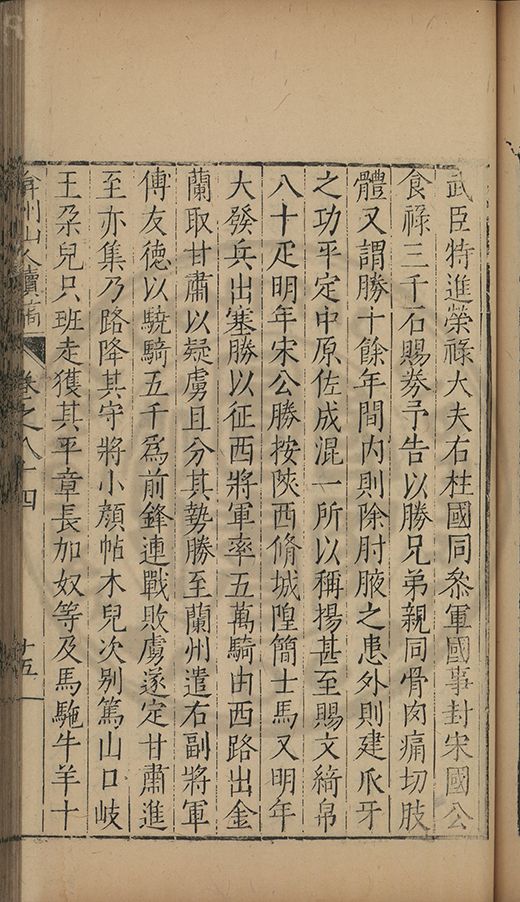 武臣特進榮祿大夫右柱國同叅軍國事封宋國公
食祿三千石賜劵予告以勝兄弟親同骨肉痛切肢
體又謂勝十餘年間內則除肘腋之患外則建爪牙
之功平定中原佐成混一所以稱揚甚至賜文綺帛
八十疋明年宋公勝按陝西脩城隍簡士馬又明年
大發兵出塞勝以征西將軍率五萬騎由西路出金
蘭取甘肅以疑虜且分其勢勝至蘭州遣右副將軍
傅友德以驍騎五千爲前鋒連戰敗虜遂定甘肅進
至亦集乃路降其守將小顔帖木兒次別篤山口岐
王朶兒只班走獲其平章長加奴等及馬駞牛羊十
弇州山人續稿 卷之八十四 十五